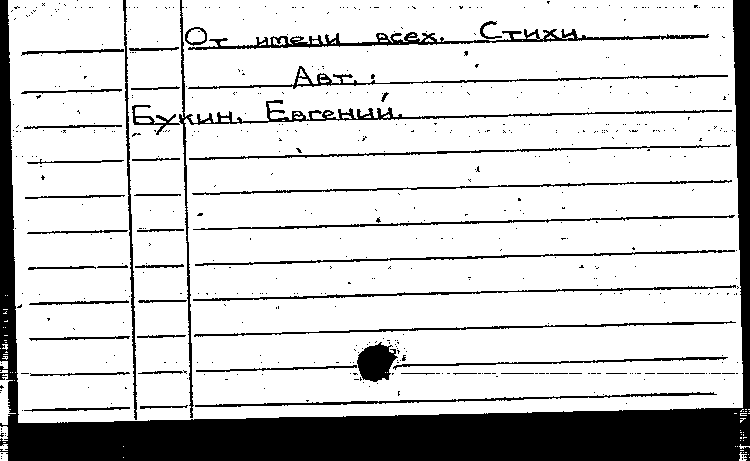 От имени всех. Стихи.
Авт.:
Букин, Евгений.